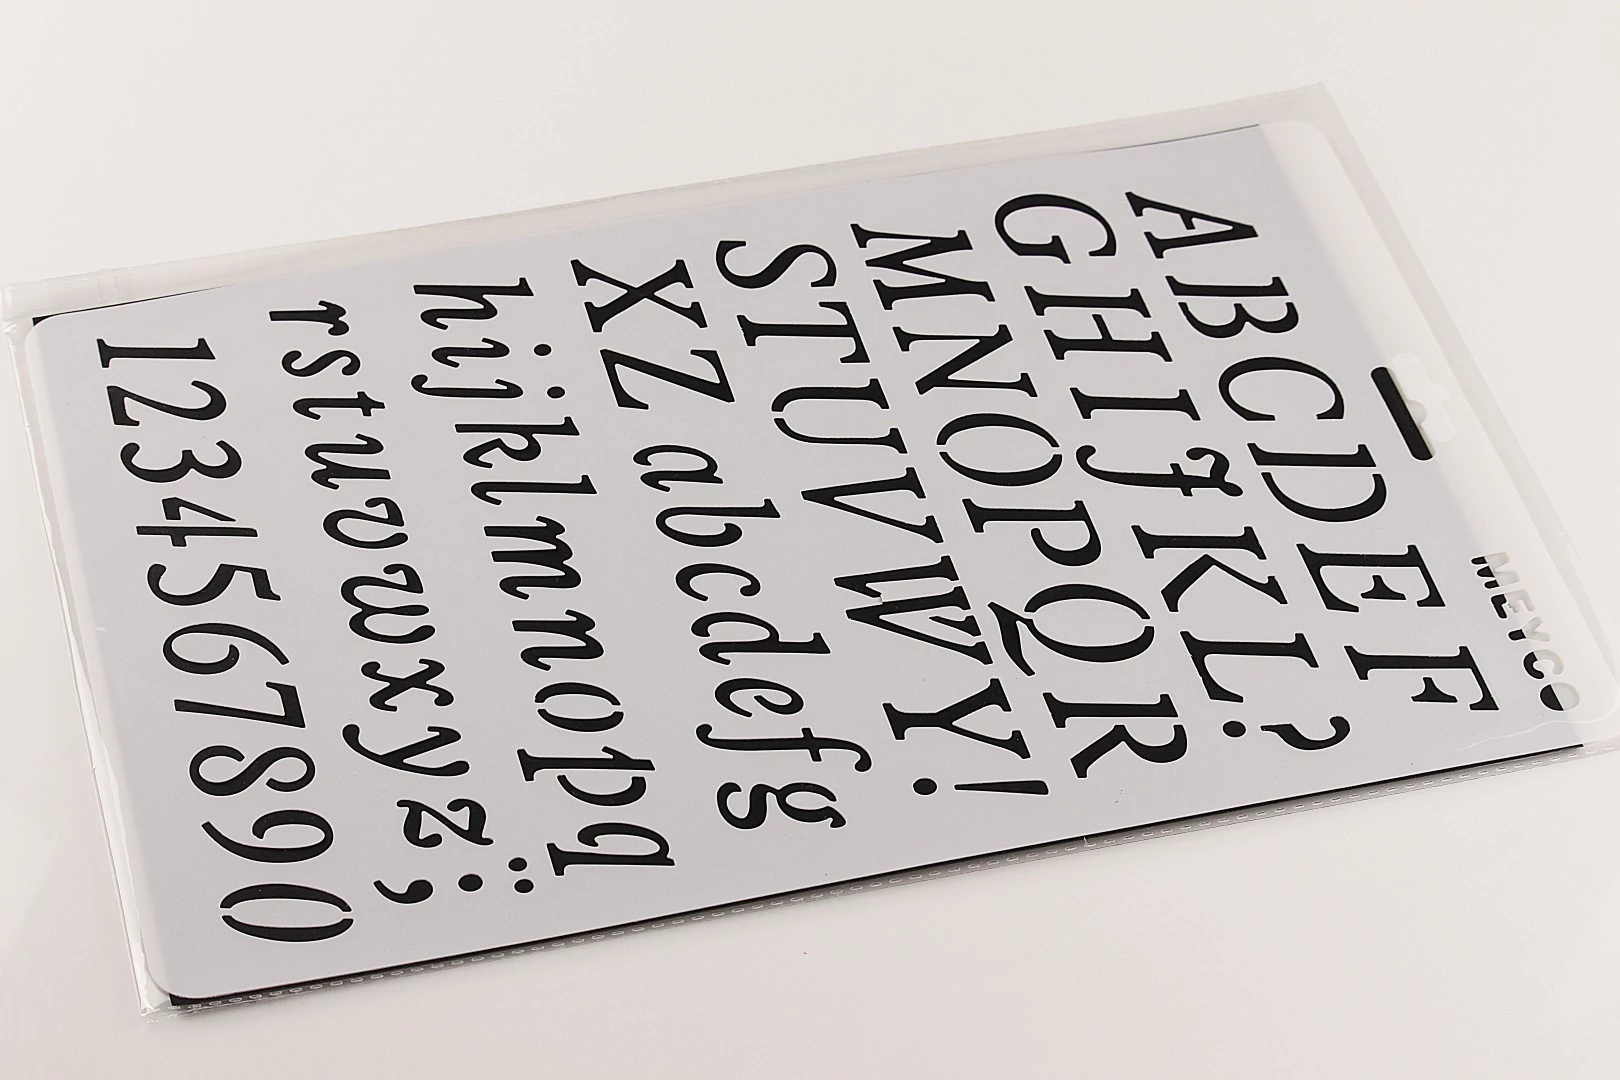 MEYCO
ABCDEF
GHIJKL?
MNOPQR
STUVWY!
XZ abcdefg
hijklmnopq
rstuvwxyz;¨
1234567890